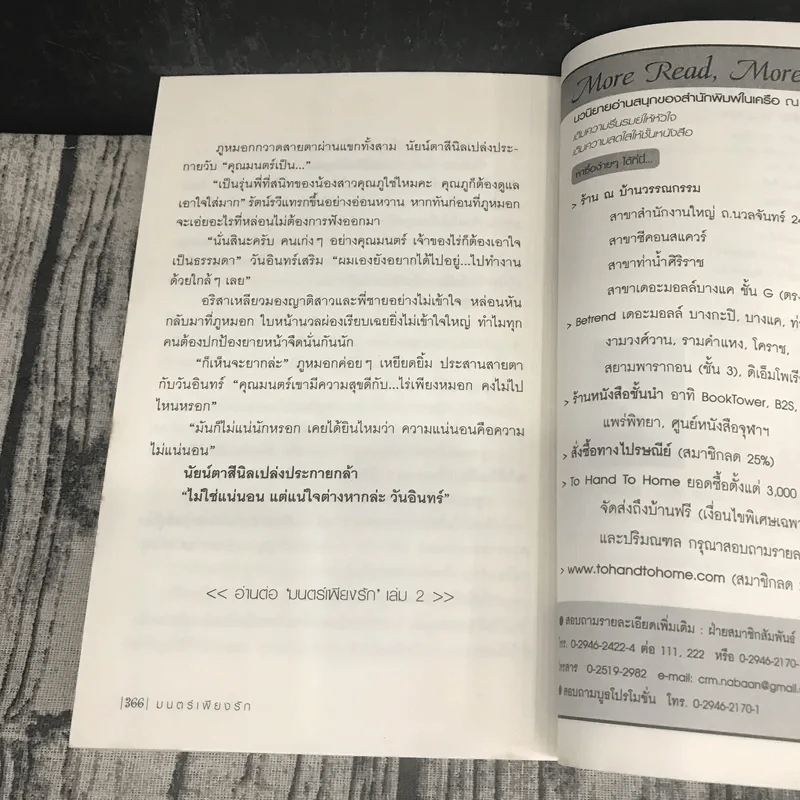 ภูหมอกกวาดสายตาผ่านแขกทั้งสาม นัยน์ตาสีนิลเปล่งประ-
กายวับ “คุณมนตร์เป็น...”
“เป็นรุ่นพี่ที่สนิทของน้องสาวคุณภูใช่ไหมคะ คุณภูก็ต้องดูแล
เอาใจใส่มาก” รัตน์รวีแทรกขึ้นอย่างอ่อนหวาน หากทันก่อนที่ภูหมอก
จะเอ่ยอะไรที่หล่อนไม่ต้องการฟังออกมา
“นั่นสินะครับ คนเก่งๆ อย่างคุณมนตร์ เจ้าของไร่ก็ต้องเอาใจ
เป็นธรรมดา” วันอินทร์เสริม “ผมเองยังอยากได้ไปอยู่...ไปทำงาน
ด้วยใกล้ๆ เลย”
อริสาเหลียวมองญาติสาวและพี่ชายอย่างไม่เข้าใจ หล่อนหัน
กลับมาที่ภูหมอก ใบหน้านวลผ่องเรียบเฉยยิ่งไม่เข้าใจใหญ่ ทำไมทุก
คนต้องปกป้องยายหน้าจืดนั่นกันนัก
“ก็เห็นจะยากล่ะ” ภูหมอกค่อยๆ เหยียดยิ้ม ประสานสายตา
กับวันอินทร์ “คุณมนตร์เขามีความสุขดีกับ...ไร่เพียงหมอก คงไม่ไป
ไหนหรอก”
“มันก็ไม่แน่นักหรอก เคยได้ยินไหมว่า ความแน่นอนคือความ
ไม่แน่นอน”
นัยน์ตาสีนิลเปล่งประกายกล้า
“ไม่ใช่แน่นอน แต่แน่ใจต่างหากล่ะ วันอินทร์”
<< อ่านต่อ ‘มนตร์เพียงรัก’ เล่ม 2 >>
|366| มนตร์เพียงรัก
More Read, More
นวนิยายอ่านสนุกของสำนักพิมพ์ในเครือ ณ
เติมความรื่นรมย์ให้หัวใจ
เติมความสดใสให้ชั้นหนังสือ
หาซื้อง่ายๆ ได้ที่นี่...
> ร้าน ณ บ้านวรรณกรรม
สาขาสำนักงานใหญ่ ถ.นวลจันทร์ 24
สาขาซีคอนสแควร์
สาขาท่าน้ำศิริราช
สาขาเดอะมอลล์บางแค ชั้น G (ตรง
> Betrend เดอะมอลล์ บางกะปิ, บางแค, ท่
งามวงศ์วาน, รามคำแหง, โคราช,
สยามพารากอน (ชั้น 3), ดิเอ็มโพเรี
> ร้านหนังสือชั้นนำ อาทิ BookTower, B2S,
แพร่พิทยา, ศูนย์หนังสือจุฬาฯ
> สั่งซื้อทางไปรษณีย์ (สมาชิกลด 25%)
> To Hand To Home ยอดซื้อตั้งแต่ 3,000
จัดส่งถึงบ้านฟรี (เงื่อนไขพิเศษเฉพา
และปริมณฑล กรุณาสอบถามรายละ
> www.tohandtohome.com (สมาชิกลด
สอบถามรายละเอียดเพิ่มเติม : ฝ่ายสมาชิกสัมพันธ์
โทร. 0-2946-2422-4 ต่อ 111, 222 หรือ 0-2946-2170-
โทรสาร 0-2519-2982 e-mail: crm.nabaan@gmail.
สอบถามบูธโปรโมชั่น โทร. 0-2946-2170-1